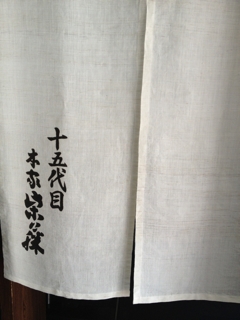 十五代目
本家宗薩